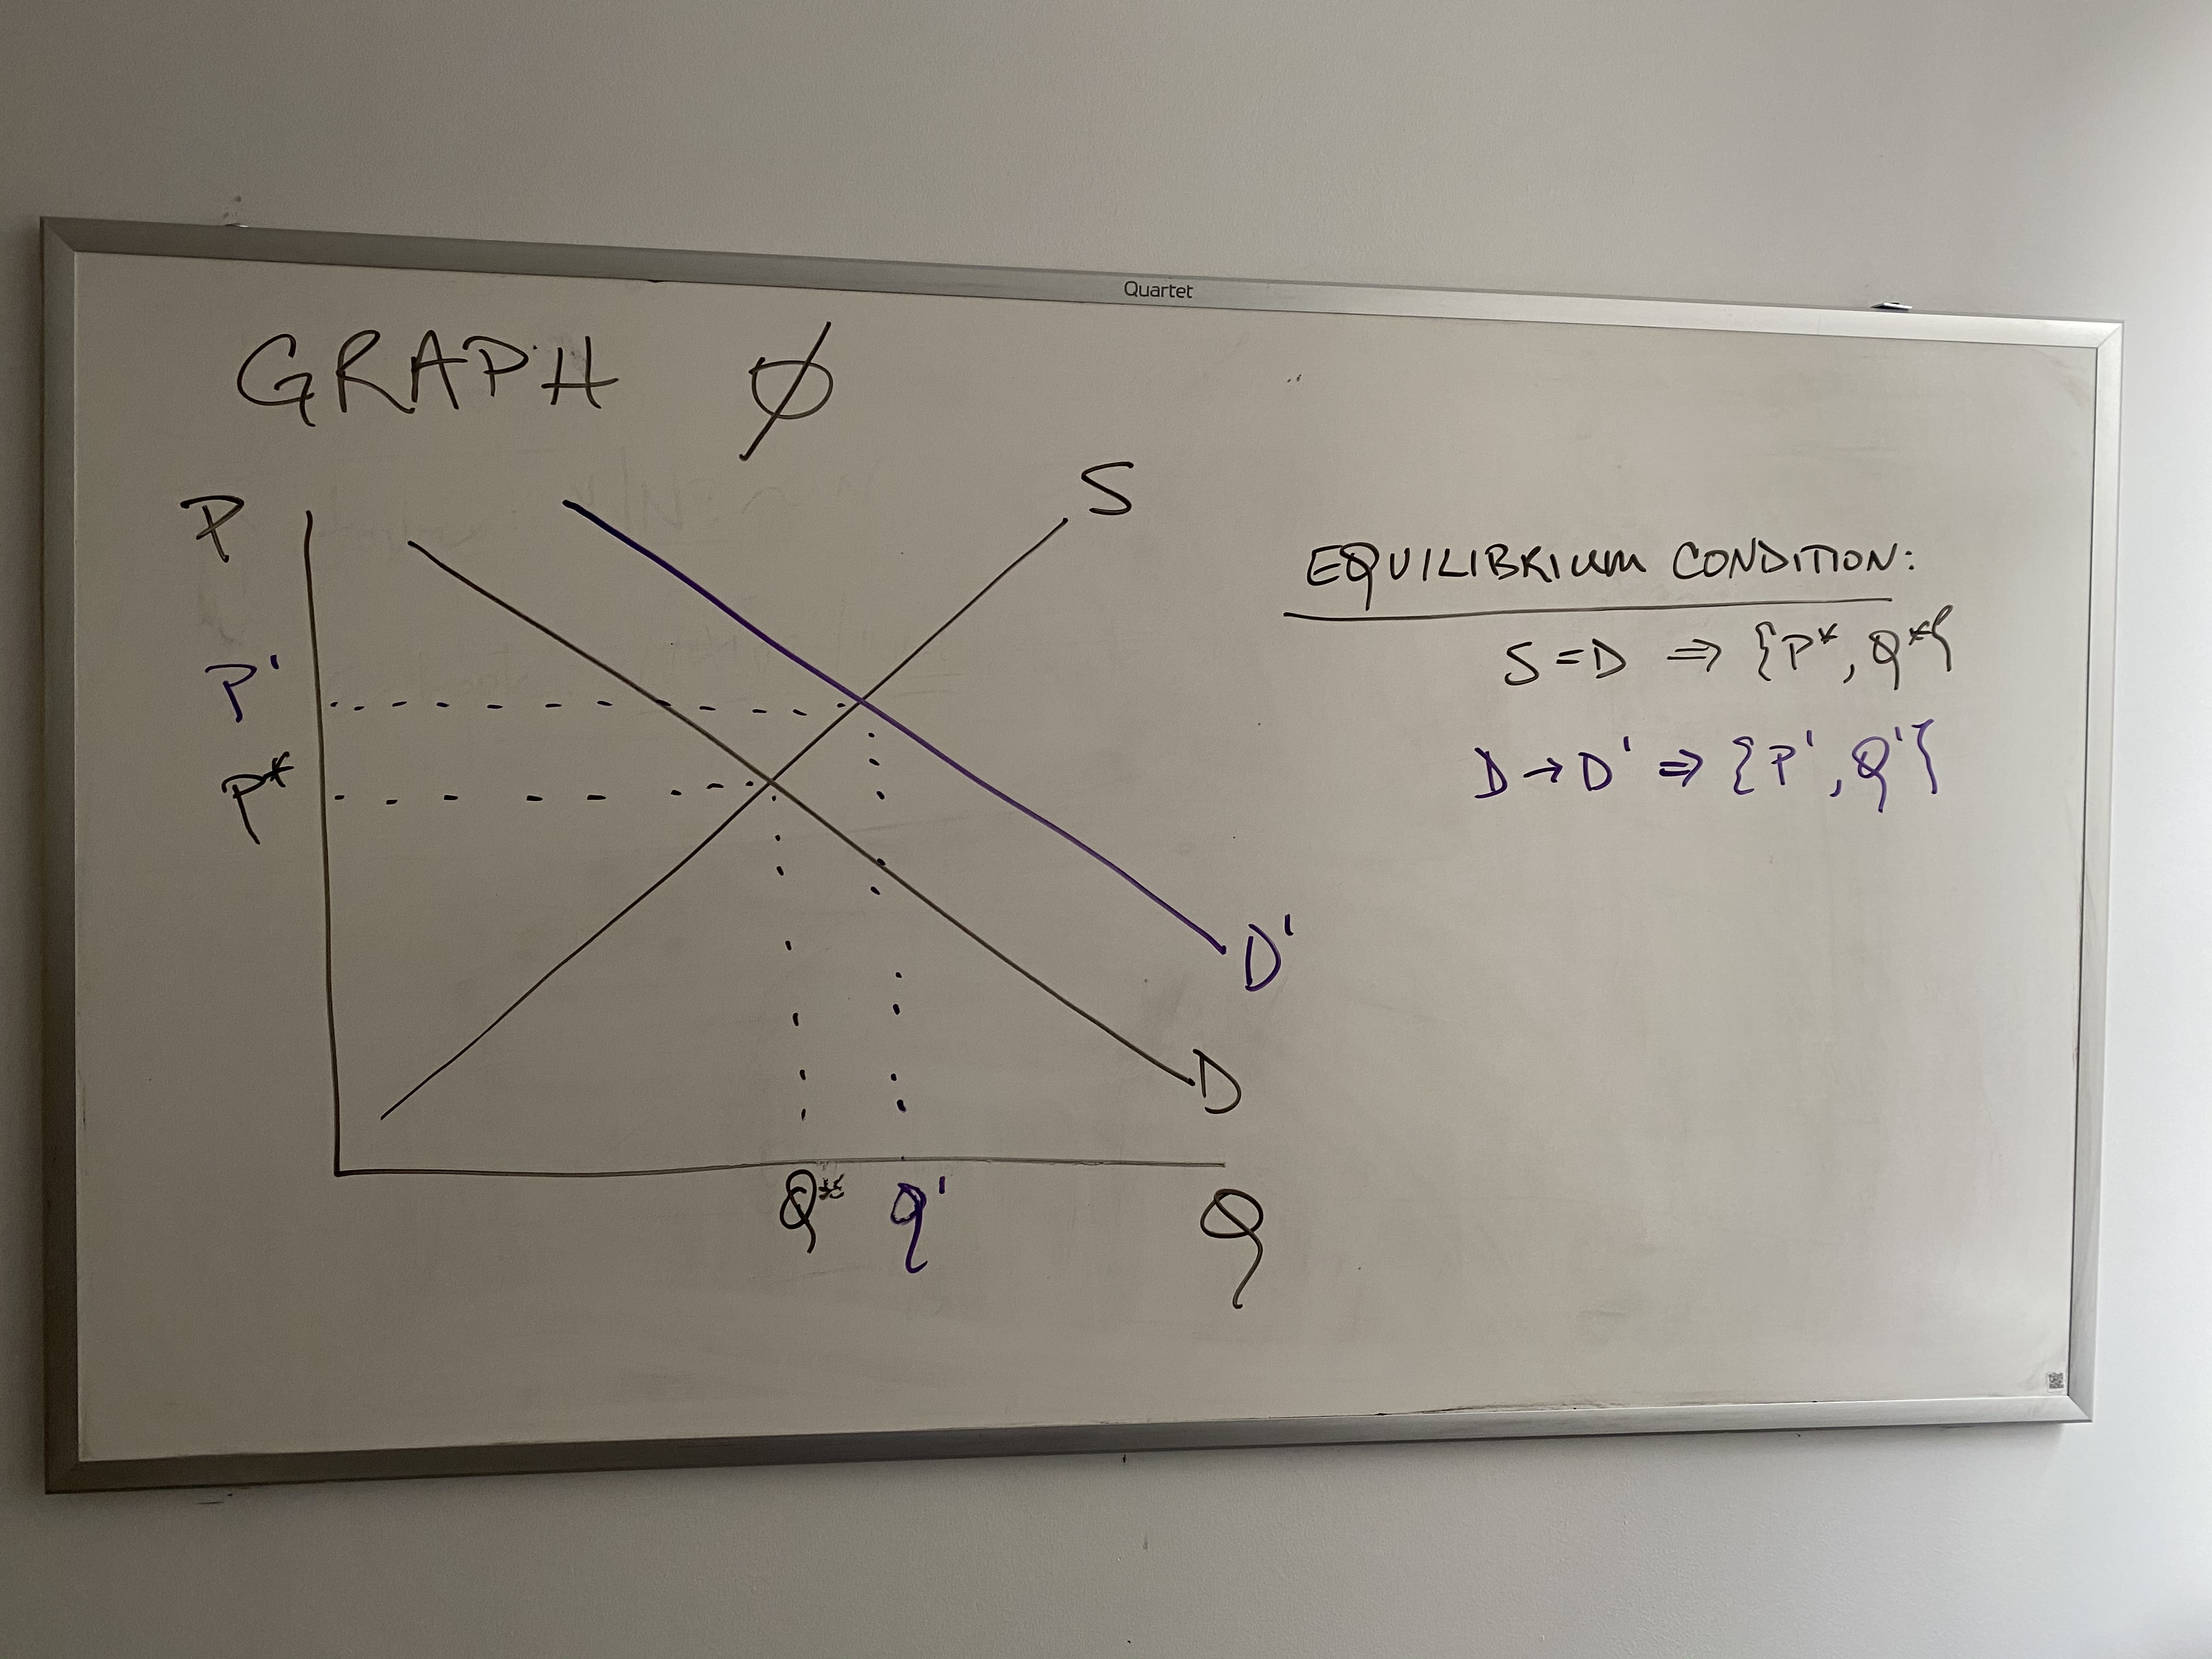 Quartet
GRAPH Ø
P
S
P'
P*
D'
D
Q* Q'
Q
EQUILIBRIUM CONDITION:
S = D ⇒ {P*, Q*}
D → D' ⇒ {P', Q'}